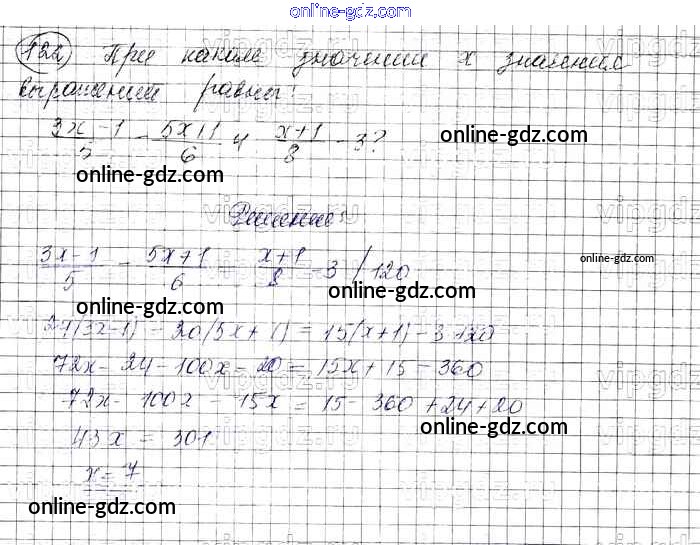 online-gdz.com
122) При каком значении x значения
выражений равны:
3x-1/5 - 5x+1/6 и x+1/8 - 3?
online-gdz.com
online-gdz.com
Решение:
3x-1/5 - 5x+1/6 = x+1/8 - 3 / 120
online-gdz.com
online-gdz.com
online-gdz.com
24(3x-1) - 20(5x+1) = 15(x+1) - 3·120
72x - 24 - 100x - 20 = 15x + 15 - 360
72x - 100x - 15x = 15 - 360 + 24 + 20
online-gdz.com
43x = 301
x = 7
online-gdz.com